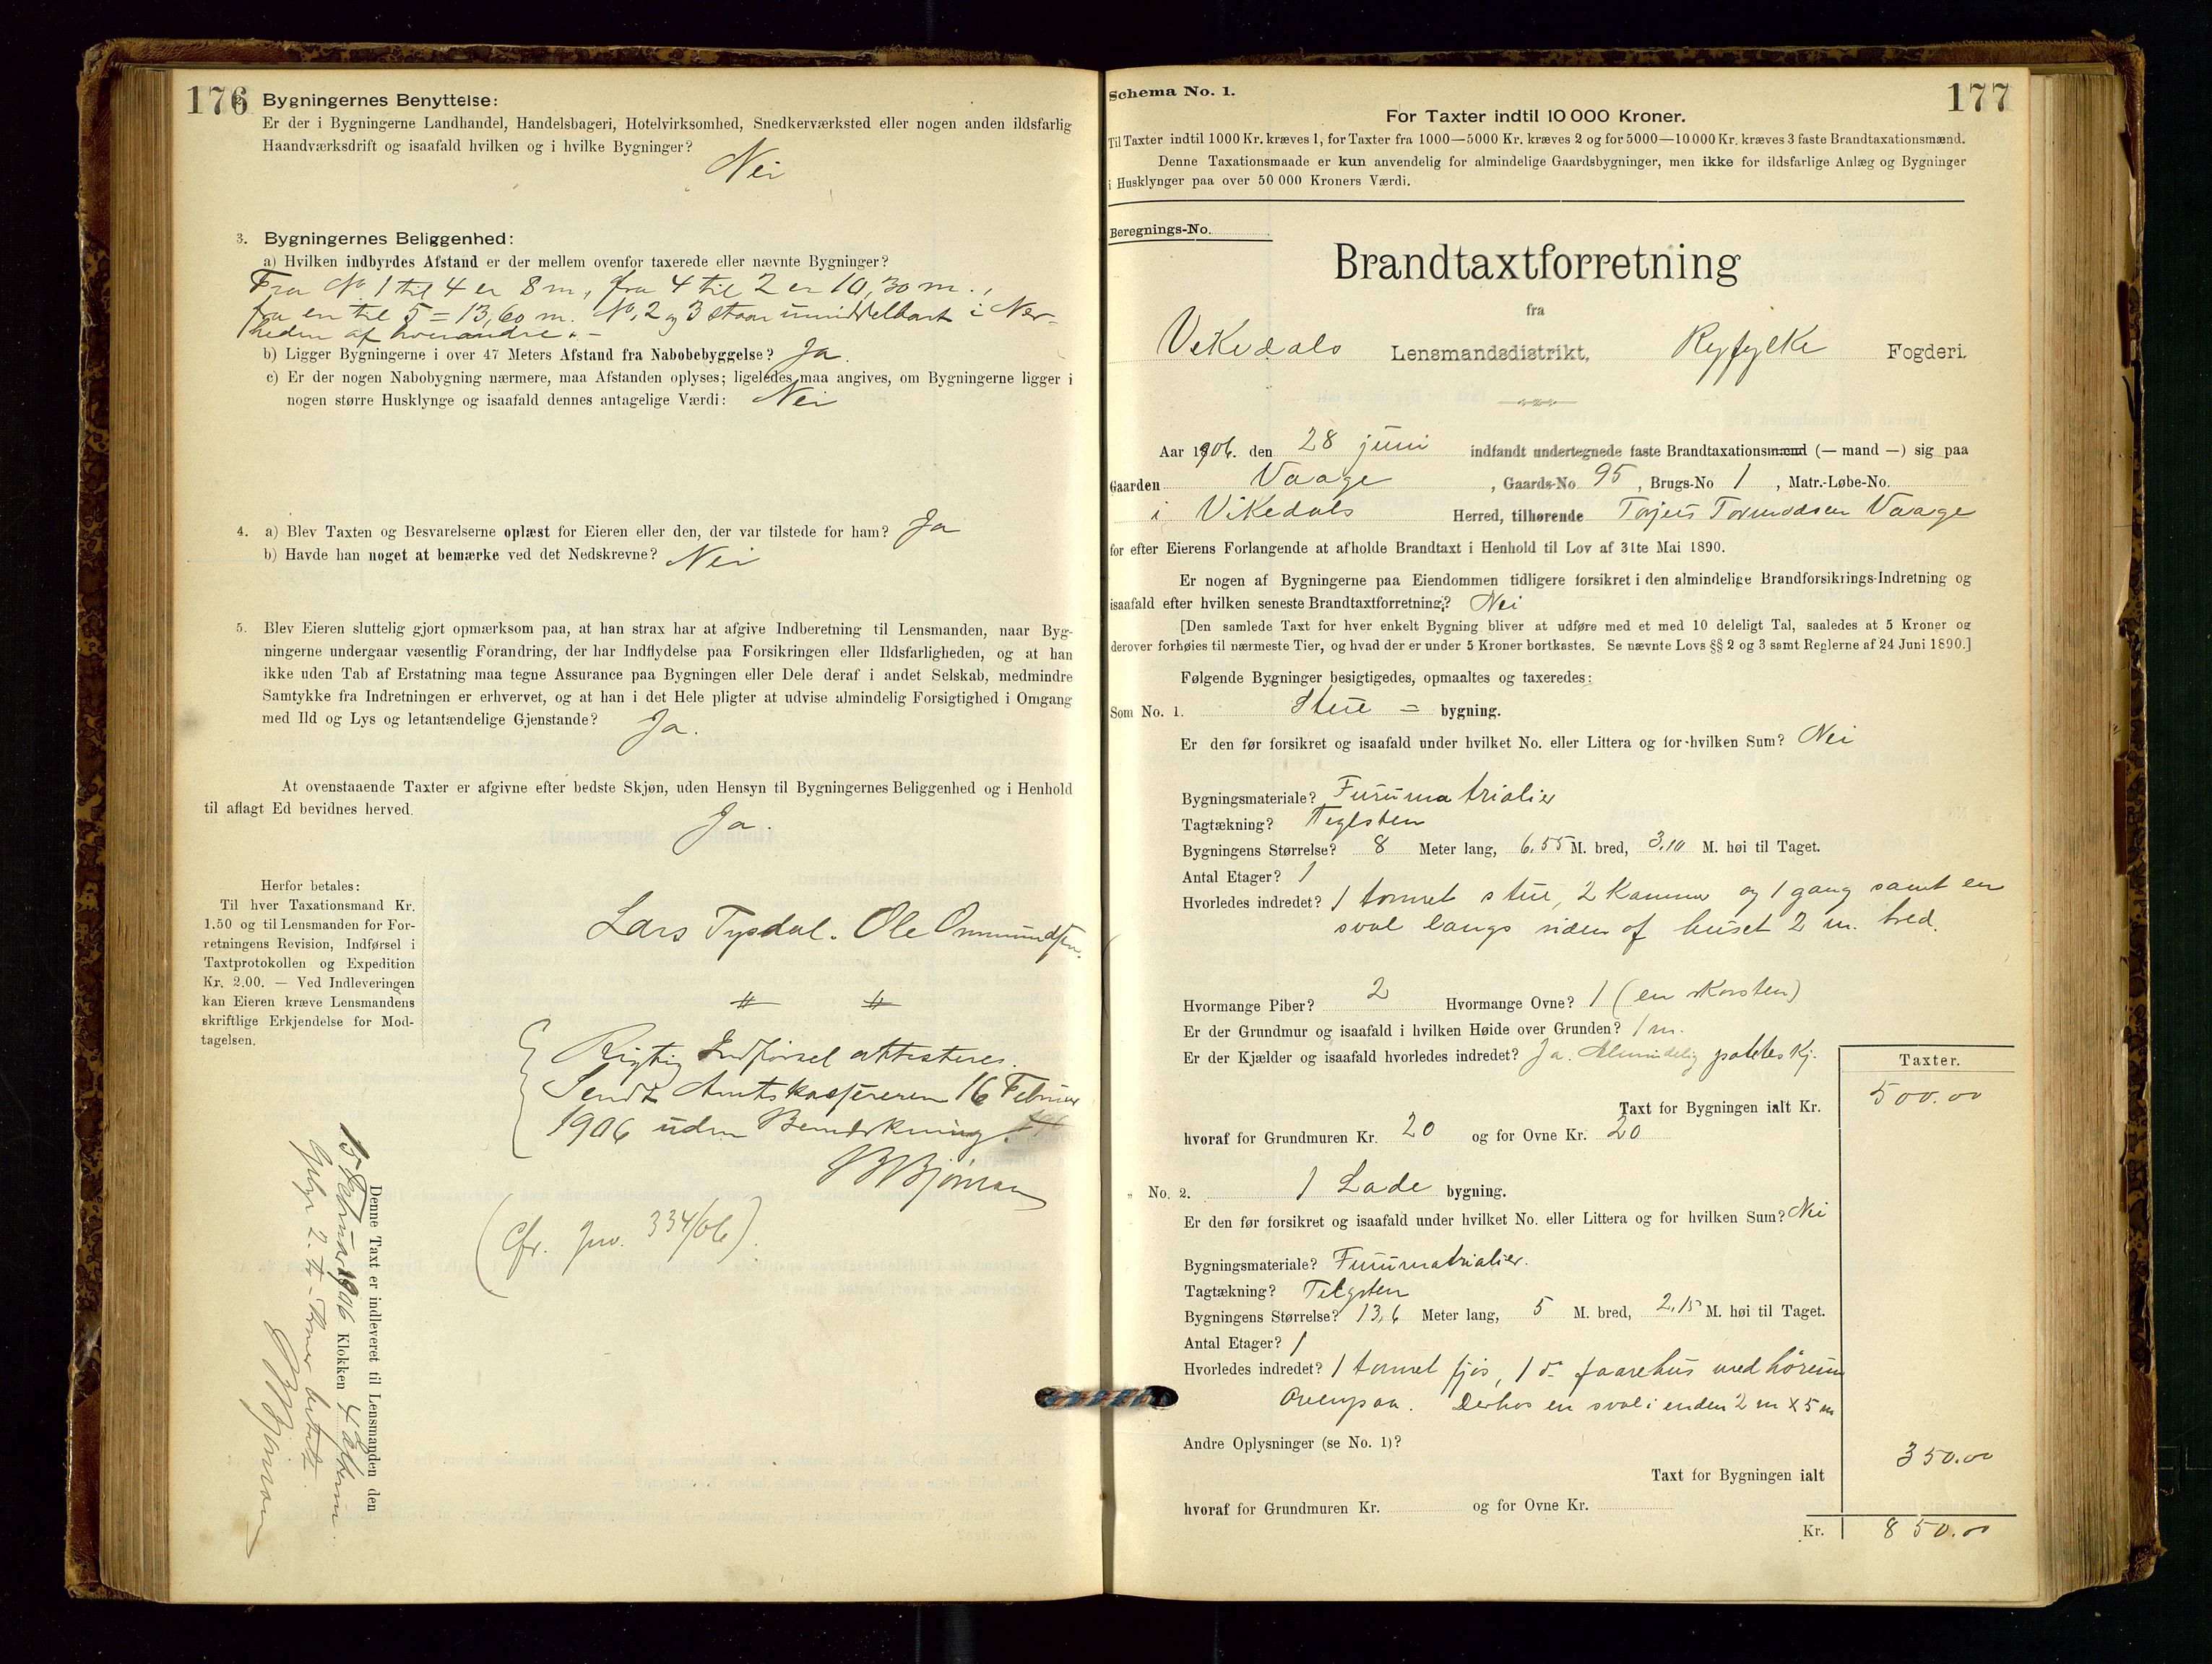 176
Bygningernes Benyttelse:
Er der i Bygningerne Landhandel, Handelsbageri, Hotelvirksomhed, Snedkerværksted eller nogen anden ildsfarlig
Haandværksdrift og isaafald hvilken og i hvilke Bygninger?
Nei
3. Bygningernes Beliggenhed:
a) Hvilken indbyrdes Afstand er der mellem ovenfor taxerede eller nævnte Bygninger?
Fra No 1 til 4 er 8 m, fra 4 til 2 er 10,30 m.,
fra en til 5 = 13,60 m. No. 2 og 3 staar umiddelbart i Nær-
heden af hverandre. -
b) Ligger Bygningerne i over 47 Meters Afstand fra Nabobebyggelse? Ja.
c) Er der nogen Nabobygning nærmere, maa Afstanden oplyses; ligeledes maa angives, om Bygningerne ligger i
nogen større Husklynge og isaafald dennes antagelige Værdi: Nei
4. a) Blev Taxten og Besvarelserne oplæst for Eieren eller den, der var tilstede for ham? Ja
b) Havde han noget at bemærke ved det Nedskrevne? Nei
5. Blev Eieren sluttelig gjort opmærksom paa, at han strax har at afgive Indberetning til Lensmanden, naar Byg-
ningerne undergaar væsentlig Forandring, der har Indflydelse paa Forsikringen eller Ildsfarligheden, og at han
ikke uden Tab af Erstatning maa tegne Assurance paa Bygningen eller Dele deraf i andet Selskab, medmindre
Samtykke fra Indretningen er erhvervet, og at han i det Hele pligter at udvise almindelig Forsigtighed i Omgang
med Ild og Lys og letantændelige Gjenstande? Ja.
At ovenstaaende Taxter er afgivne efter bedste Skjøn, uden Hensyn til Bygningernes Beliggenhed og i Henhold
til aflagt Ed bevidnes herved.
Ja.
Herfor betales:
Til hver Taxationsmand Kr.
1.50 og til Lensmanden for For-
retningens Revision, Indførsel i
Taxtprotokollen og Expedition
Kr. 2.00. — Ved Indleveringen
kan Eieren kræve Lensmandens
skriftlige Erkjendelse for Mod-
tagelsen.
Lars Tysdal. Ole Ommundsen.
Rigtig Indførsel attesteres.
Sendt Amtskassereren 16 Februar
1906 uden Bemærkning.
Bjørnson
(Cfr. Jnv. 334/06).
Denne Taxt er indleveret til Lensmanden den
15 Februar 1906 Klokken 4 Efterm.
Gebyr 2. to Kroner betalt.
Bjørnson
Schema No. 1.
177
For Taxter indtil 10 000 Kroner.
Til Taxter indtil 1000 Kr. kræves 1, for Taxter fra 1000—5000 Kr. kræves 2 og for 5000—10 000 Kr. kræves 3 faste Brandtaxationsmænd.
Denne Taxationsmaade er kun anvendelig for almindelige Gaardsbygninger, men ikke for ildsfarlige Anlæg og Bygninger
i Husklynger paa over 50 000 Kroners Værdi.
Beregnings-No.
Brandtaxtforretning
fra
Vikedals Lensmandsdistrikt, Ryfylke Fogderi.
Aar 1906. den 28 juni indfandt undertegnede faste Brandtaxationsmænd (— mand —) sig paa
Gaarden Vaage , Gaards-No 95 , Brugs-No 1 , Matr.-Løbe-No.
i Vikedals Herred, tilhørende Torjus Tormodsen Vaage
for efter Eierens Forlangende at afholde Brandtaxt i Henhold til Lov af 31te Mai 1890.
Er nogen af Bygningerne paa Eiendommen tidligere forsikret i den almindelige Brandforsikrings-Indretning og
isaafald efter hvilken seneste Brandtaxtforretning? Nei
[Den samlede Taxt for hver enkelt Bygning bliver at udføre med et med 10 deleligt Tal, saaledes at 5 Kroner og
derover forhøies til nærmeste Tier, og hvad der er under 5 Kroner bortkastes. Se nævnte Lovs §§ 2 og 3 samt Reglerne af 24 Juni 1890.]
Følgende Bygninger besigtigedes, opmaaltes og taxeredes:
Som No. 1. Stue = bygning.
Er den før forsikret og isaafald under hvilket No. eller Littera og for hvilken Sum? Nei
Bygningsmateriale? Furumatrialier
Tagtækning? Teglsten
Bygningens Størrelse? 8 Meter lang, 6.55 M. bred, 3.10 M. høi til Taget.
Antal Etager? 1
Hvorledes indredet? 1 tømret stue, 2 kammer og 1 gang samt en
sval langs siden af huset 2 m. bred.
Hvormange Piber? 2 Hvormange Ovne? 1 (en skorsten)
Er der Grundmur og isaafald i hvilken Høide over Grunden? 1 m.
Er der Kjælder og isaafald hvorledes indredet? Ja. Almindelig potetes kj.
Taxter.
Taxt for Bygningen ialt Kr. 500.00
hvoraf for Grundmuren Kr. 20 og for Ovne Kr. 20
" No. 2. 1 Lade bygning.
Er den før forsikret og isaafald under hvilket No. eller Littera og for hvilken Sum? Nei
Bygningsmateriale? Furumatrialier.
Tagtækning? Telgsten
Bygningens Størrelse? 13,6 Meter lang, 5 M. bred, 2.15 M. høi til Taget.
Antal Etager? 1
Hvorledes indredet? 1 tømret fjøs, 1 do faarehus med hørum
ovenpaa. Derhos en sval i enden 2 m x 5 m
Andre Oplysninger (se No. 1)?
Taxt for Bygningen ialt 350.00
hvoraf for Grundmuren Kr. og for Ovne Kr.
Kr. 850.00